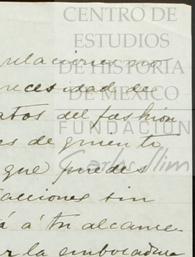 CENTRO DE
ESTUDIOS
DE HISTORIA
DE MÉXICO
FUNDACIÓN
Carlos Slim
relaciones con
necesidad de
atos del fashion
as de
que puedes
aciones sin
á á tu alcance
r la embocadura